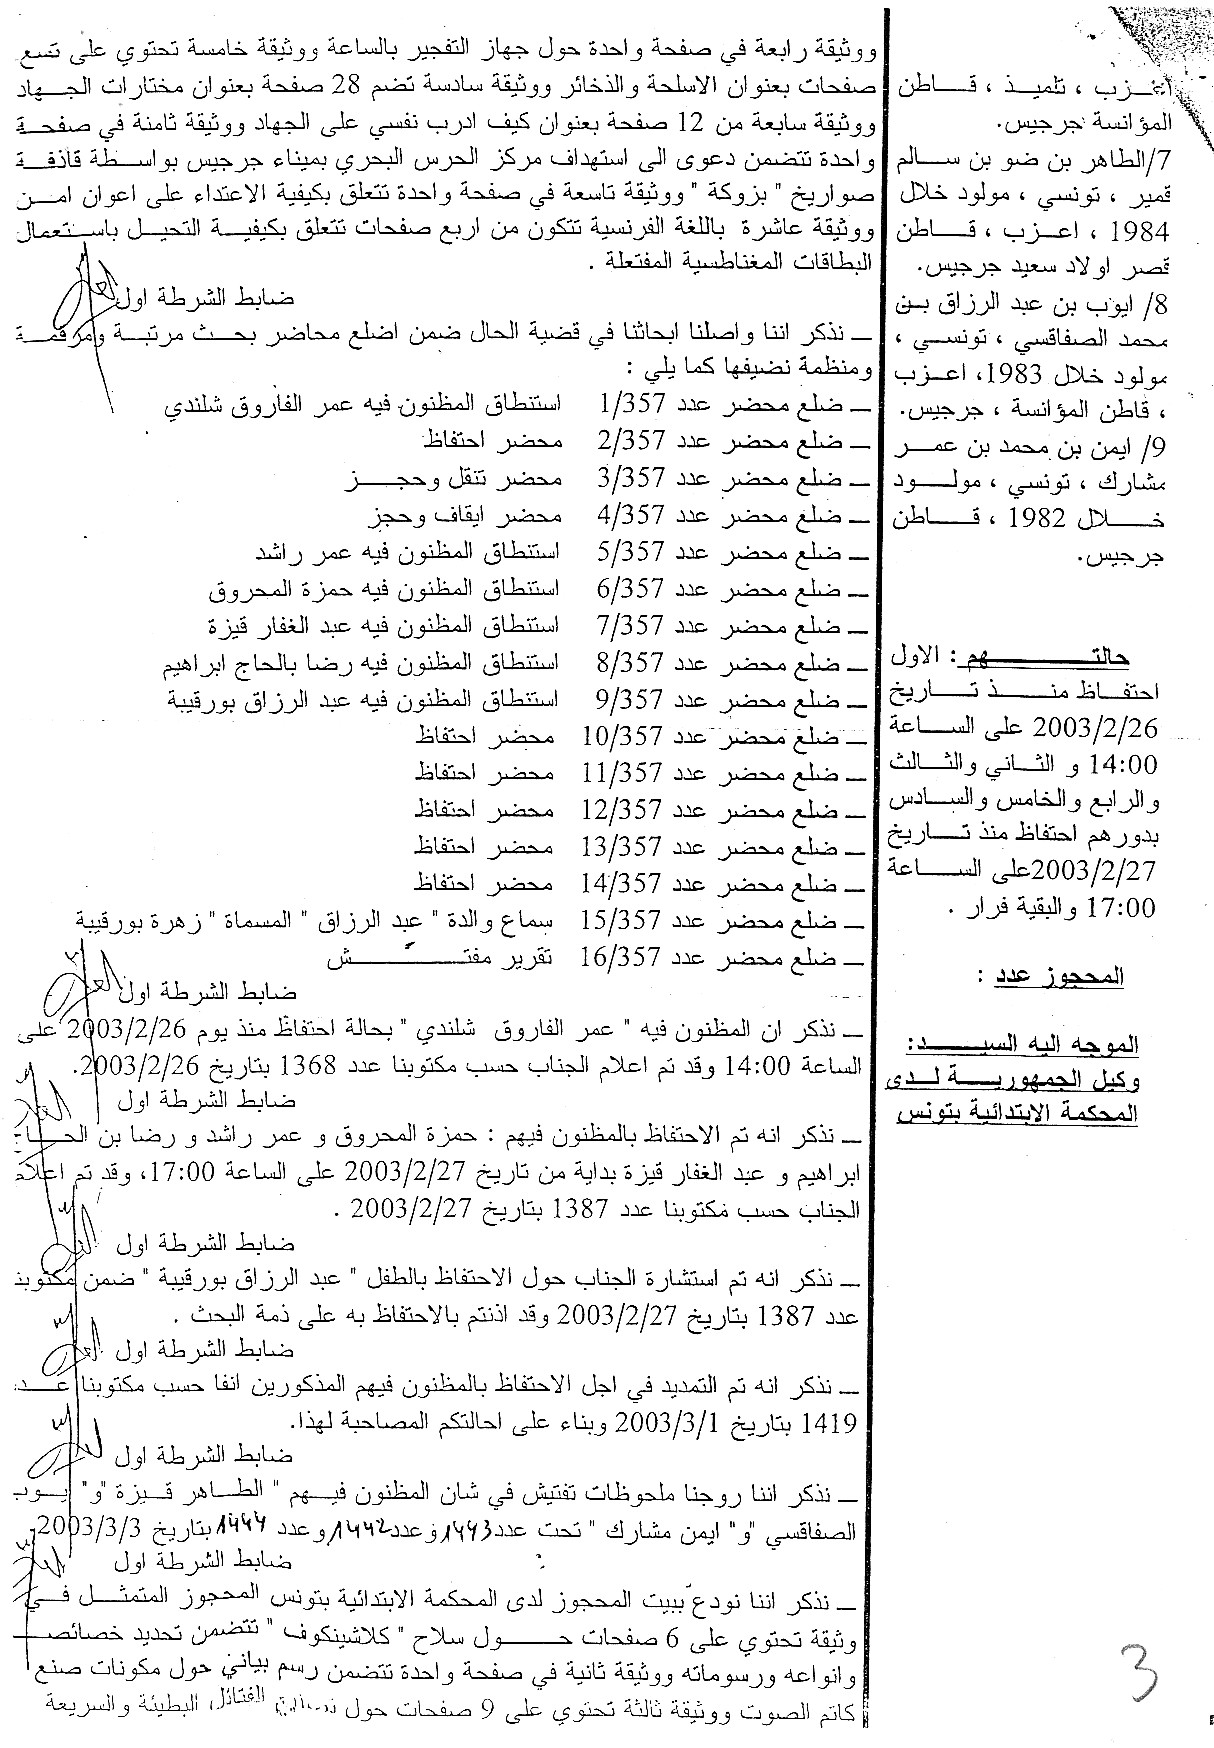 اعزب ، تلميذ ، قاطن
المؤانسة جرجيس.
7/الطاهر بن ضو بن سالم
قمير ، تونسي ، مولود خلال
1984 ، اعزب ، قاطن
قصر اولاد سعيد جرجيس.
8/ ايوب بن عبد الرزاق بن
محمد الصفاقسي ، تونسي ،
مولود خلال 1983، اعزب
، قاطن المؤانسة ، جرجيس.
9/ ايمن بن محمد بن عمر
مشارك ، تونسي ، مولود
خلال 1982 ، قاطن
جرجيس.
حالتهم : الاول
احتفاظ منذ تاريخ
2003/2/26 على الساعة
14:00 و الثاني والثالث
والرابع والخامس والسادس
بدورهم احتفاظ منذ تاريخ
2003/2/27على الساعة
17:00 والبقية فرار .
المحجوز عدد :
الموجه اليه السيد:
وكيل الجمهورية لدى
المحكمة الابتدائية بتونس
ووثيقة رابعة في صفحة واحدة حول جهاز التفجير بالساعة ووثيقة خامسة تحتوي على تسع
صفحات بعنوان الاسلحة والذخائر ووثيقة سادسة تضم 28 صفحة بعنوان مختارات الجهاد
ووثيقة سابعة من 12 صفحة بعنوان كيف ادرب نفسي على الجهاد ووثيقة ثامنة في صفحة
واحدة تتضمن دعوى الى استهداف مركز الحرس البحري بميناء جرجيس بواسطة قاذفة
صواريخ " بزوكة " ووثيقة تاسعة في صفحة واحدة تتعلق بكيفية الاعتداء على اعوان امن
ووثيقة عاشرة باللغة الفرنسية تتكون من اربع صفحات تتعلق بكيفية التحيل باستعمال
البطاقات المغناطسية المفتعلة .
ضابط الشرطة اول
ـ نذكر اننا واصلنا ابحاثنا في قضية الحال ضمن اضلع محاضر بحث مرتبة ومرقمة
ومنظمة نضيفها كما يلي :
ـ ضلع محضر عدد 1/357 استنطاق المظنون فيه عمر الفاروق شلندي
ـ ضلع محضر عدد 2/357 محضر احتفاظ
ـ ضلع محضر عدد 3/357 محضر تنقل وحجز
ـ ضلع محضر عدد 4/357 محضر ايقاف وحجز
ـ ضلع محضر عدد 5/357 استنطاق المظنون فيه عمر راشد
ـ ضلع محضر عدد 6/357 استنطاق المظنون فيه حمزة المحروق
ـ ضلع محضر عدد 7/357 استنطاق المظنون فيه عبد الغفار قيزة
ـ ضلع محضر عدد 8/357 استنطاق المظنون فيه رضا بالحاج ابراهيم
ـ ضلع محضر عدد 9/357 استنطاق المظنون فيه عبد الرزاق بورقيبة
ـ ضلع محضر عدد 10/357 محضر احتفاظ
ـ ضلع محضر عدد 11/357 محضر احتفاظ
ـ ضلع محضر عدد 12/357 محضر احتفاظ
ـ ضلع محضر عدد 13/357 محضر احتفاظ
ـ ضلع محضر عدد 14/357 محضر احتفاظ
ـ ضلع محضر عدد 15/357 سماع والدة " عبد الرزاق " المسماة " زهرة بورقيبة
ـ ضلع محضر عدد 16/357 تقرير مفتش
ضابط الشرطة اول
ـ نذكر ان المظنون فيه " عمر الفاروق شلندي " بحالة احتفاظ منذ يوم 2003/2/26 على
الساعة 14:00 وقد تم اعلام الجناب حسب مكتوبنا عدد 1368 بتاريخ 2003/2/26.
ضابط الشرطة اول
ـ نذكر انه تم الاحتفاظ بالمظنون فيهم : حمزة المحروق و عمر راشد و رضا بن الحاج
ابراهيم و عبد الغفار قيزة بداية من تاريخ 2003/2/27 على الساعة 17:00، وقد تم اعلام
الجناب حسب مكتوبنا عدد 1387 بتاريخ 2003/2/27 .
ضابط الشرطة اول
ـ نذكر انه تم استشارة الجناب حول الاحتفاظ بالطفل " عبد الرزاق بورقيبة " ضمن مكتوبنا
عدد 1387 بتاريخ 2003/2/27 وقد اذنتم بالاحتفاظ به على ذمة البحث .
ضابط الشرطة اول
ـ نذكر انه تم التمديد في اجل الاحتفاظ بالمظنون فيهم المذكورين انفا حسب مكتوبنا عدد
1419 بتاريخ 2003/3/1 وبناء على احالتكم المصاحبة لهذا.
ضابط الشرطة اول
ـ نذكر اننا روجنا ملحوظات تفتيش في شان المظنون فيهم " الطاهر قيزة "و" ايوب
الصفاقسي "و" ايمن مشارك " تحت عدد 1443 و عدد 1442 و عدد 1444 بتاريخ 2003/3/3.
ضابط الشرطة اول
ـ نذكر اننا نودع ببيت المحجوز لدى المحكمة الابتدائية بتونس المحجوز المتمثل في
وثيقة تحتوي على 6 صفحات حول سلاح " كلاشينكوف " تتضمن تحديد خصائصه
وانواعه ورسوماته ووثيقة ثانية في صفحة واحدة تتضمن رسم بياني حول مكونات صنع
كاتم الصوت ووثيقة ثالثة تحتوي على 9 صفحات حول الفتائل البطيئة والسريعة
3